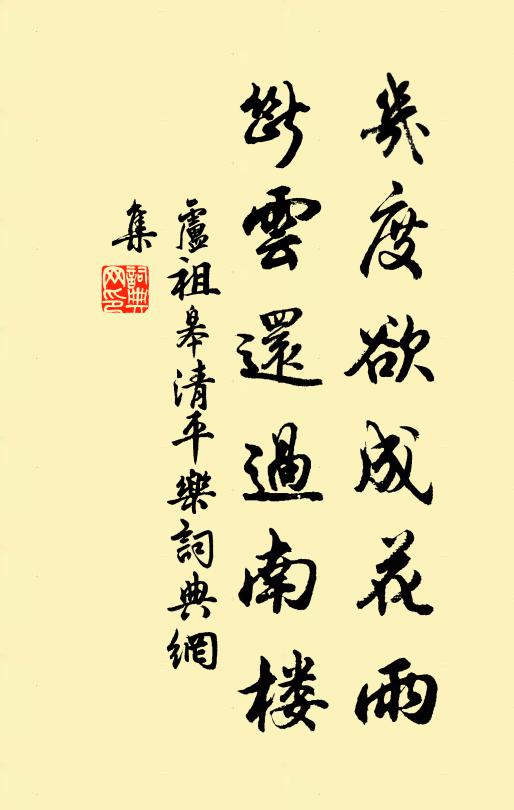 幾度欲成花雨
斷雲還過南楼
盧祖皋清平樂詞典網
集
詞典網印